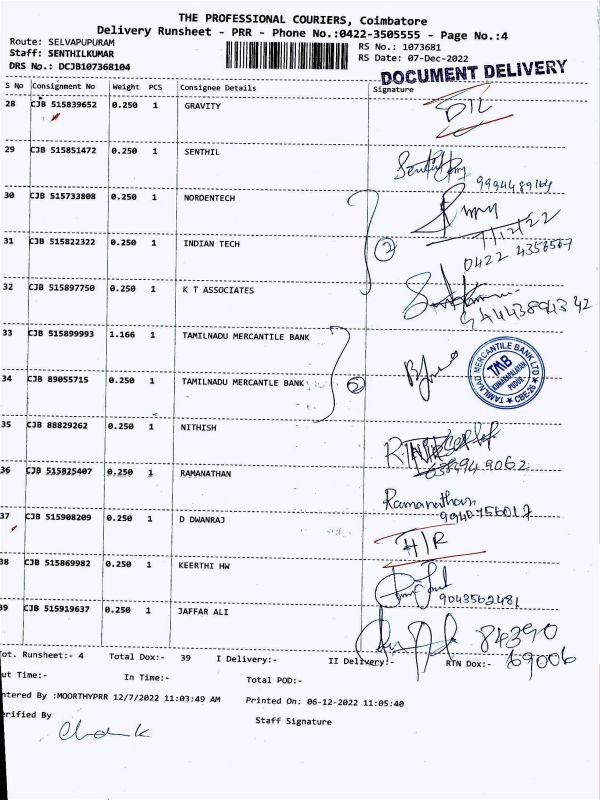 THE PROFESSIONAL COURIERS, Coimbatore
Delivery Runsheet - PRR - Phone No.:0422-3505555 - Page No.:4
Route: SELVAPUPURAM
RS No.: 1073681
Staff: SENTHILKUMAR
RS Date: 07-Dec-2022
DRS No.: DCJB107368104
DOCUMENT DELIVERY
S No Consignment No Weight PCS Consignee Details Signature
28 CJB 515839652 0.250 1 GRAVITY
29 CJB 515851472 0.250 1 SENTHIL
9994489164
30 CJB 515733808 0.250 1 NORDENTECH
7/12/22
31 CJB 515822322 0.250 1 INDIAN TECH
0422 4356507
32 CJB 515897750 0.250 1 K T ASSOCIATES
33 CJB 515899993 1.166 1 TAMILNADU MERCANTILE BANK
TAMILNAD MERCANTILE BANK LTD
TMB
CBE-26
34 CJB 89055715 0.250 1 TAMILNADU MERCANTLE BANK
2
35 CJB 88829262 0.250 1 NITHISH
36 CJB 515825407 0.250 1 RAMANATHAN
Ramanathan
9940756017
37 CJB 515908209 0.250 1 D DWANRAJ
H/R
38 CJB 515869982 0.250 1 KEERTHI HW
9043562481
39 CJB 515919637 0.250 1 JAFFAR ALI
84390
69006
Tot. Runsheet:- 4 Total Dox:- 39 I Delivery:- II Delivery:- RTN Dox:-
ut Time:- In Time:- Total POD:-
ntered By :MOORTHYPRR 12/7/2022 11:03:49 AM Printed On: 06-12-2022 11:05:40
erified By Staff Signature